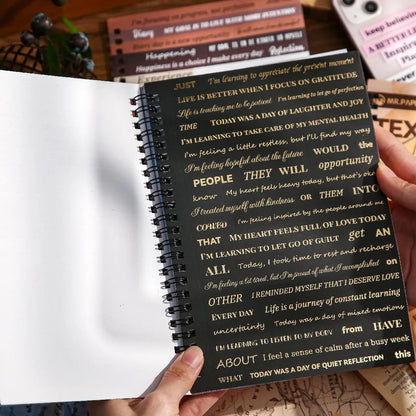 I'm focusing on personal
MY GOAL IS TO LIVE WITH MORE INTENTION
Every day is a new opportunity
Happening
GOAL IS TO BE KINDER TO MYSELF
Happiness is a choice I make every day
Reflection
Experience
keep
believe
MR.PAPER
TEX
JUST I'm learning to appreciate the present moment
LIFE IS BETTER WHEN I FOCUS ON GRATITUDE
Life is teaching me to be patient I'm learning to let go of perfection
TIME TODAY WAS A DAY OF LAUGHTER AND JOY
I'M LEARNING TO TAKE CARE OF MY MENTAL HEALTH
I'm feeling a little restless, but I'll find my way
I'm feeling hopeful about the future WOULD the
PEOPLE THEY WILL opportunity
know My heart feels heavy today, but that's okay
I treated myself with kindness OR THEM INTO
COULD I'm feeling inspired by the people around me
THAT MY HEART FEELS FULL OF LOVE TODAY
I'M LEARNING TO LET GO OF GUILT get AN
ALL Today, I took time to rest and recharge
I'm feeling a bit tired, but I'm proud of what I accomplished on
OTHER I REMINDED MYSELF THAT I DESERVE LOVE
EVERY DAY Life is a journey of constant learning
uncertainty Today was a day of mixed emotions
I'M LEARNING TO LISTEN TO MY BODY from HAVE
ABOUT I feel a sense of calm after a busy week
WHAT TODAY WAS A DAY OF QUIET REFLECTION this